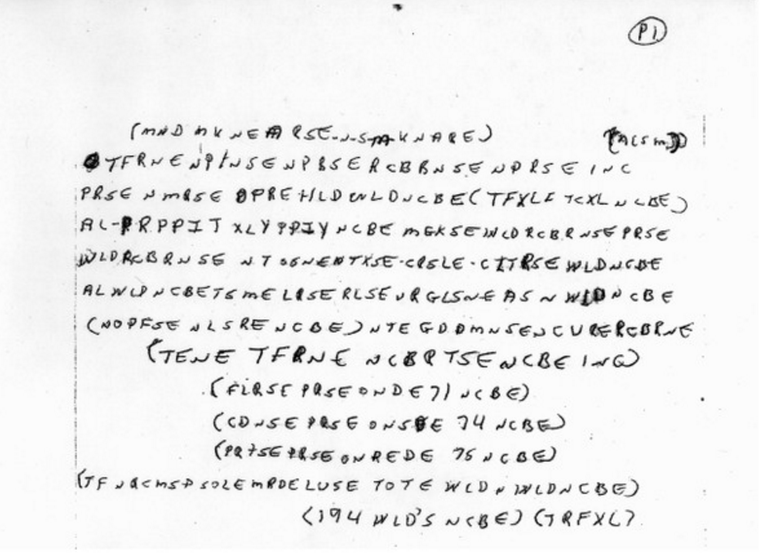 P1
(MND MKNEARSE-N-S-M-KNARE) (ACSM)
TFRNENPTNSENPBSERCBBNSENPRSEINC
PRSENMRSEOPREHLDWLDNCBE(TFXLFTCXLNCBE)
AL-PRPPITXLYPPIYNCBEMGKSEWLDRCBRNSEPRSE
WLDRCBRNSENTSGNENTXSE-CRSLE-CITRSEWLDNCBE
ALWLDNCBETSMELRSERLSEURGLSNEASNWLDNCBE
(NOPFSENLSRENCBE)NTEGDDMNSENCURERCBRNE
(TENETFRNENCBRTSENCBEINC)
(FLRSEPRSEONDE71NCBE)
(CDNSEPRSEONSDE74NCBE)
(PRTSEPRSEONREDE75NCBE)
(TFNQCMSPSOLEMRDELUSETOTEWLDNWLDNCBE)
(194WLD'SNCBE)(TRFXL)